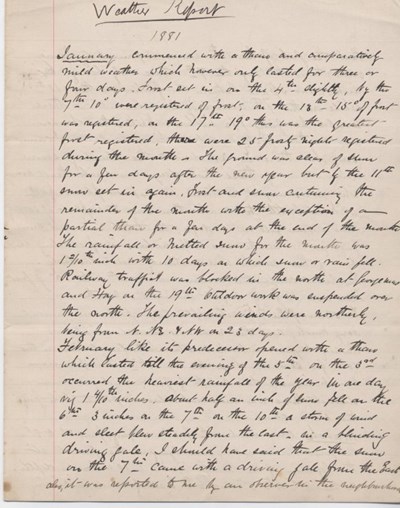 Weather Report
1881
January commenced with a thaw and comparatively
mild weather which however only lasted for three or
four days. Frost set in on the 4th slightly, by the
7th 10° were registered of frost, on the 13th 15° of frost
was registered, on the 17th 19° this was the greatest
frost registered, there were 25 frosty nights registered
during the month. The ground was clear of snow
for a few days after the new year but by the 11th
snow set in again. Frost and snow continuing the
remainder of the month with the exception of a
partial thaw for a few days at the end of the month
The rainfall or melted snow for the month was
inch with 10 days on which snow or rain fell.
Railway traffic was blocked in the north at Georgemas
and on the 19th Outdoor work was suspended over
the north. The prevailing winds were northerly,
being from N. NE & NW on 23 days.
February like its predecessor opened with a thaw
which lasted till the evening of the 5th on the 3rd
occurred the heaviest rainfall of the year in one day
inches. about half an inch of snow fell on the
6th 3 inches on the 7th on the 10th a storm of wind
and sleet blew steadily from the East in a blinding
driving gale, I should have said that the snow
on the 7th came with a driving gale from the East
it was reported to me by an observer in the neighbourhood